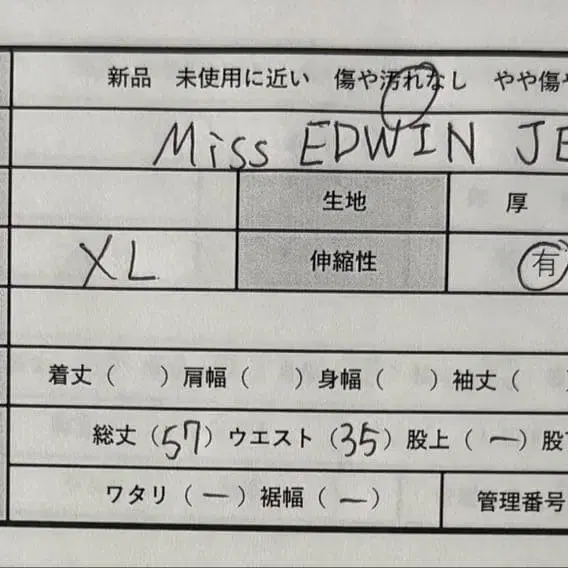 新品 未使用に近い 傷や汚れなし やや傷や
Miss EDWIN JE
生地 厚
XL 伸縮性 有
着丈( )肩幅( )身幅( )袖丈(
総丈(57)ウエスト(35)股上(ー)股下
ワタリ(ー)裾幅(ー) 管理番号